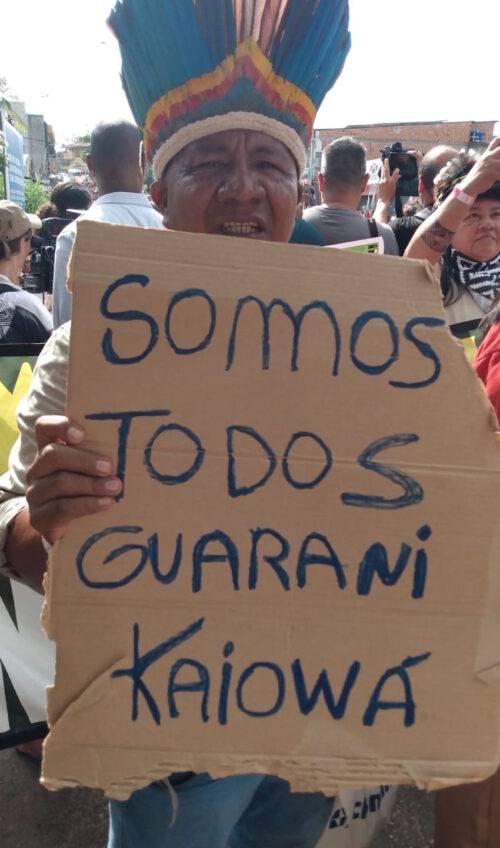 SOMMOS
TODOS
GUARANI
KAIOWÁ